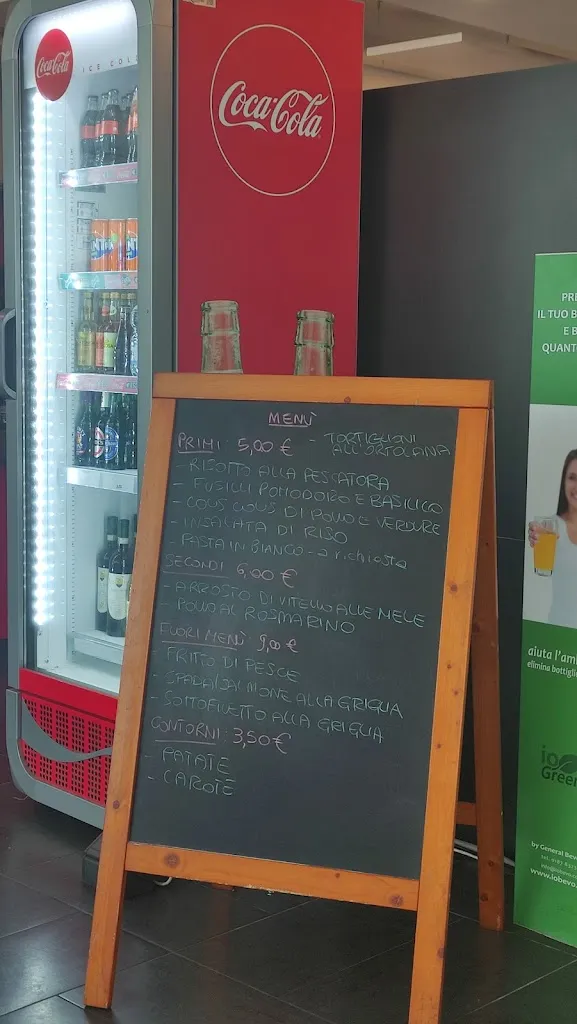 Coca-Cola
ICE COL
Coca-Cola
MENÙ
PRIMI: 5,00 € - TORTIGLIONI ALL'ORTOLANA
- RISOTTO ALLA PESCATORA
- FUSILLI POMODORO E BASILICO
- COUS COUS DI POLLO E VERDURE
- INSALATA DI RISO
- PASTA IN BIANCO - a richiesta
SECONDI 6,00 €
- ARROSTO DI VITELLO ALLE MELE
- POLLO AL ROSMARINO
FUORI MENÙ 9,00 €
- FRITTO DI PESCE
- SPADA/SALMONE ALLA GRIGLIA
- SOTTOFILETTO ALLA GRIGLIA
CONTORNI: 3,50 €
- PATATE
- CAROTE
PRE
IL TUO B
E B
QUANT
aiuta l'am
elimina bottigli
io
Green
by General Bev
www.iobevo.